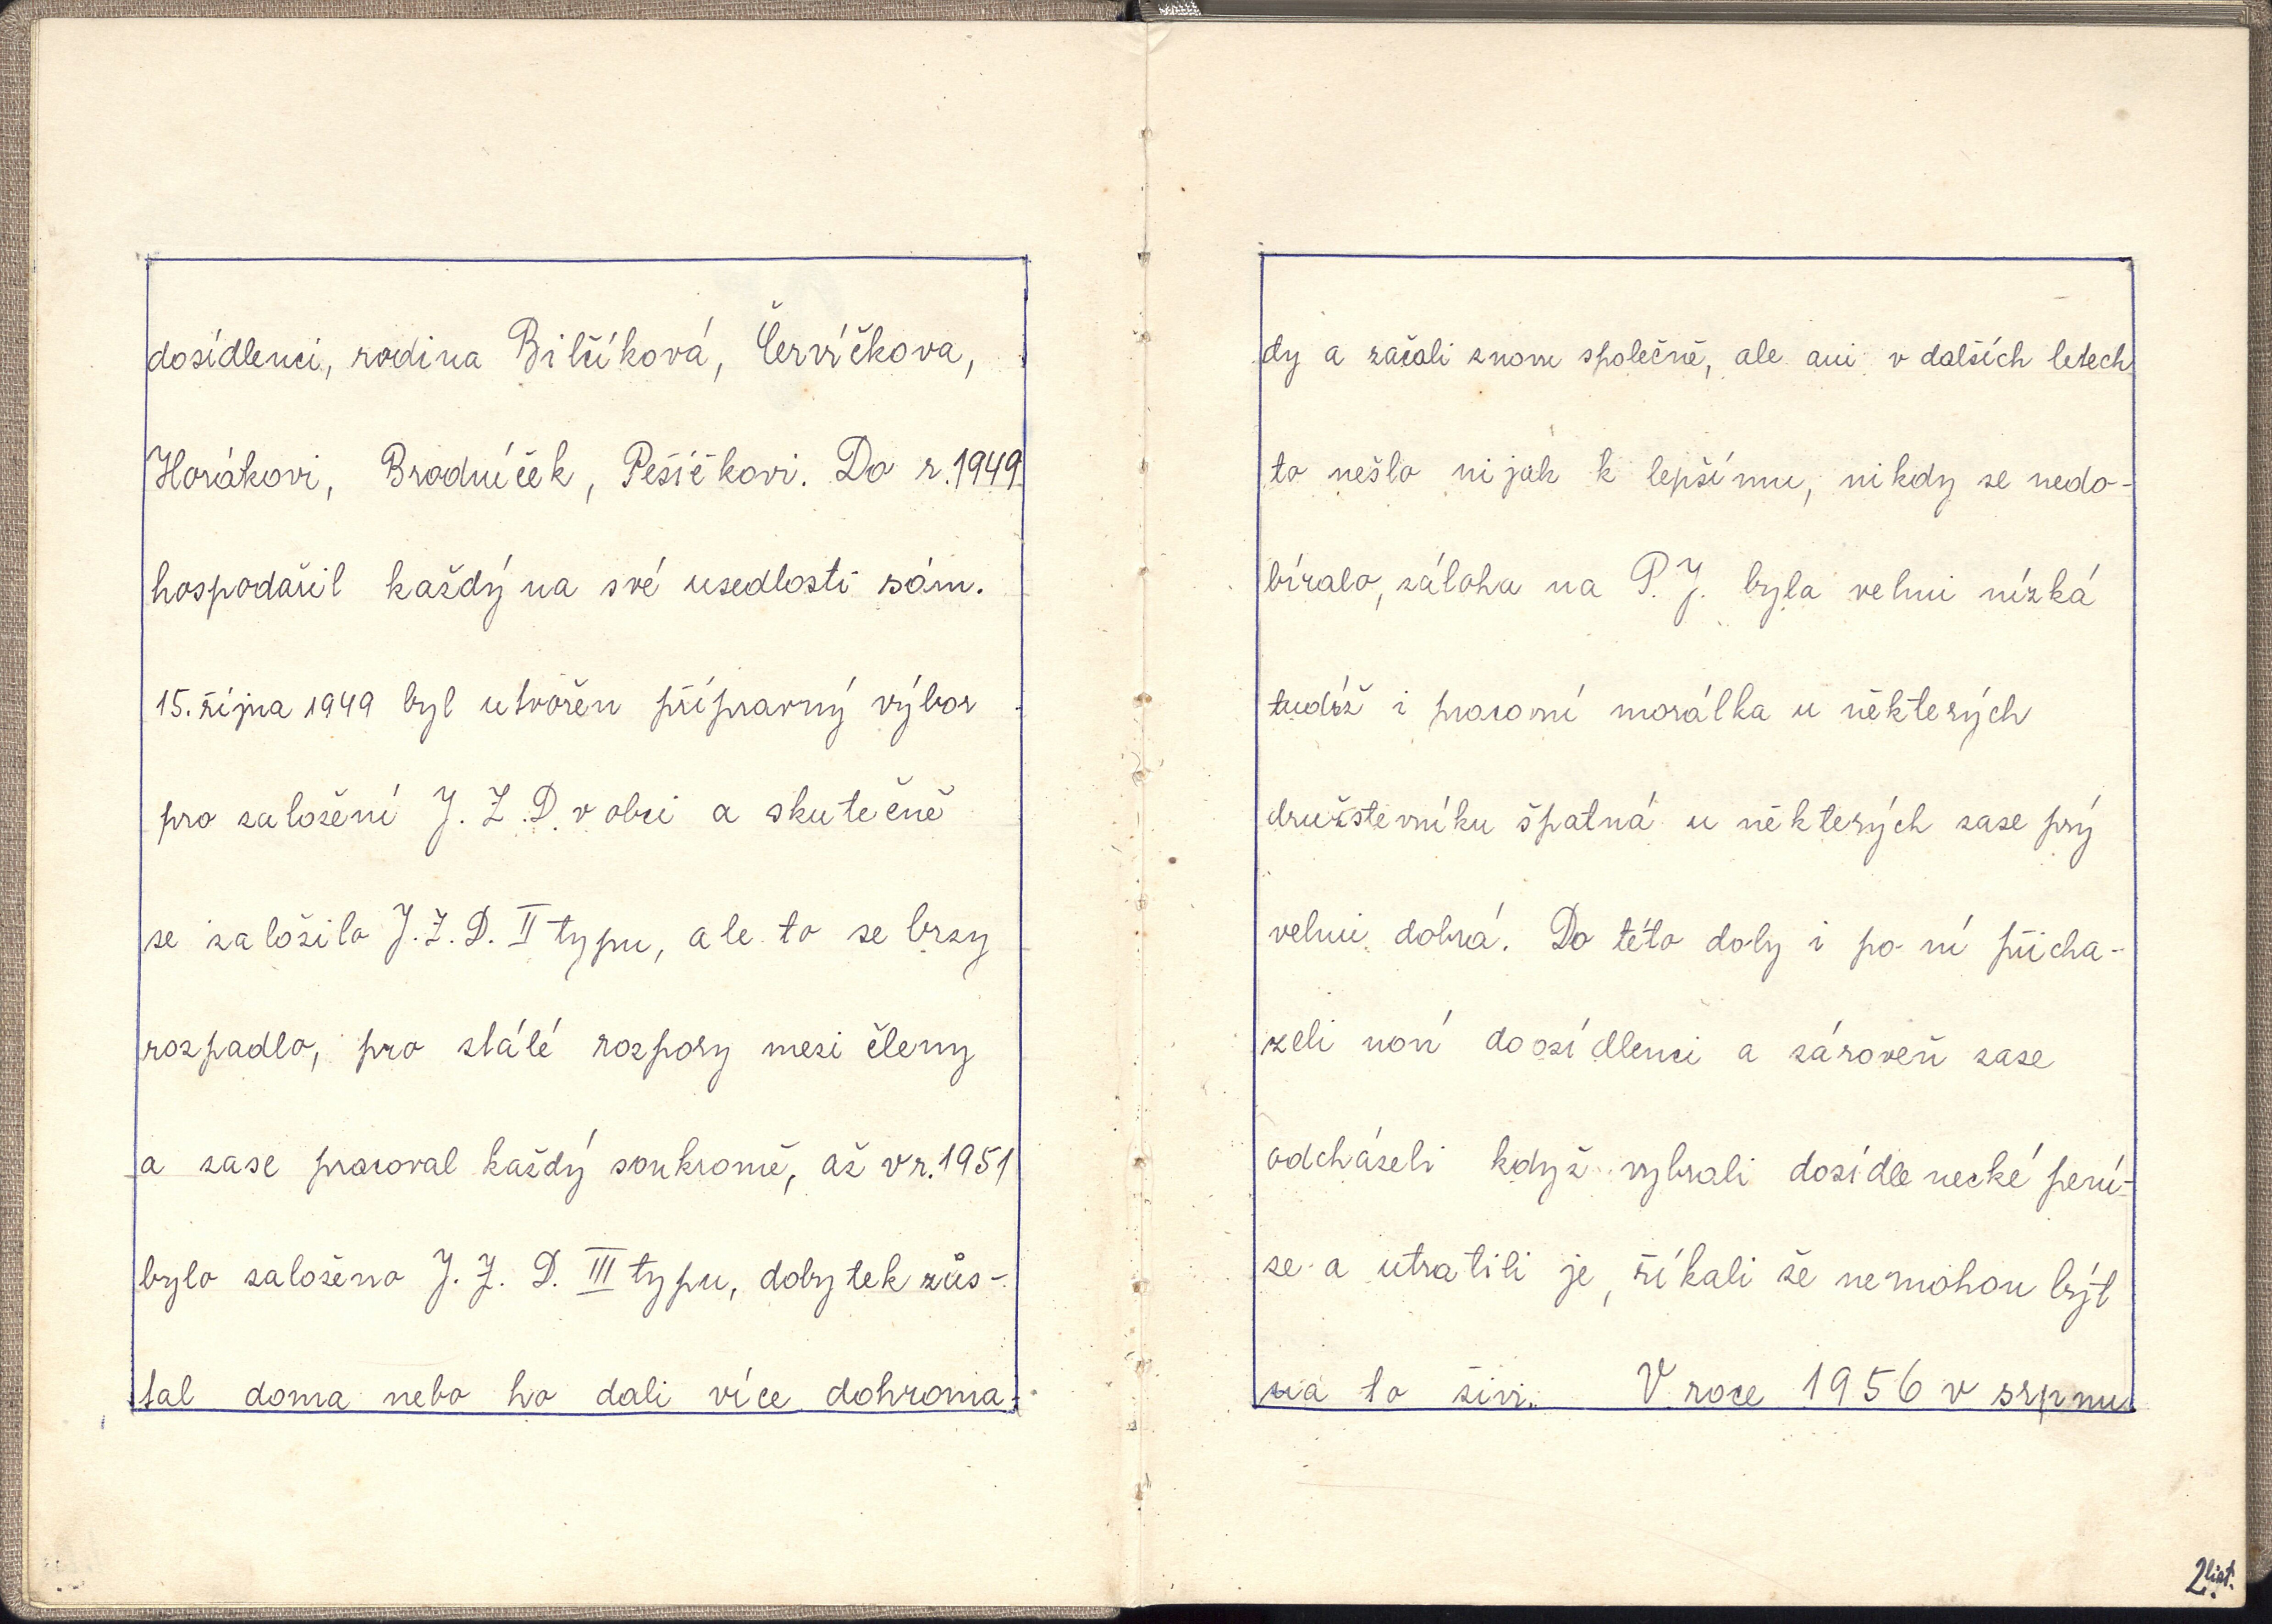 dosídlenci, rodina Bilčíková, Červíčkova,
Horákovi, Bradníček, Pešíčkovi. Do r. 1949
hospodařil každý na své usedlosti sám.
15. října 1949 byl utvořen přípravný výbor
pro založení J. Z. D. v obci a skutečně
se založilo J. Z. D. II typu, ale to se brzy
rozpadlo, pro stálé rozpory mezi členy
a zase pracoval každý soukromě, až v r. 1951
bylo založeno J. Z. D. III typu, dobytek zůs-
tal doma nebo ho dali více dohroma-
dy a začali znovu společně, ale ani v dalších letech
to nešlo nijak k lepšímu, nikdy se nedo-
bíralo, záloha na P. J. byla velmi nízká
tudíž i pracovní morálka u některých
družstevníku špatná u některých zase prý
velmi dobrá. Do této doby i po ní přicha-
zeli noví doosídlenci a zároveň zase
odcházeli když vybrali dosídlenecké pení-
ze a utratili je, říkali že nemohou být
na to živi. V roce 1956 v srpnu
2 list.